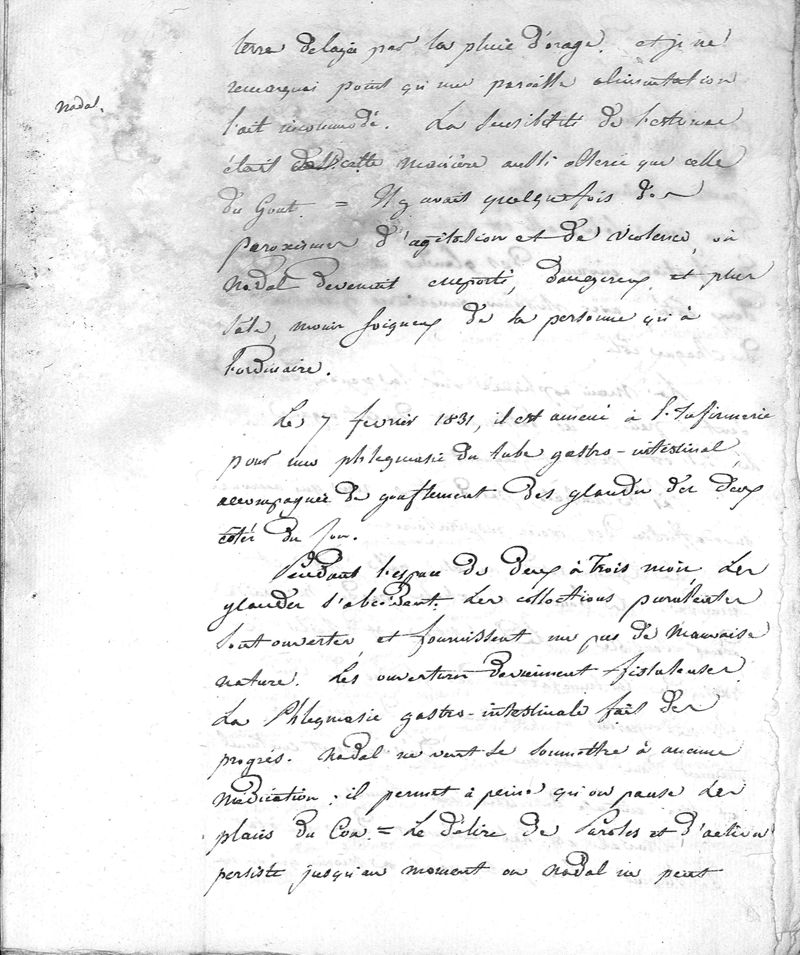 Nadal.
terre delayée par la pluie d'orage. et je ne
remarquai point qu'une pareille alimentation
l'ait incommodé. La sensibilité de l'estomac
était de cette manière aussi altérée que celle
du Gout. = Il y avait quelquefois des
paroxismes d'agitation et de violence, où
Nadal devenait emporté, dangereux, et plus
sale, moins soigneux de sa personne qu'à
l'ordinaire.
Le 7 fevrier 1831, il est amené à l'Infirmerie
pour une phlegmasie du tube gastro-intestinal,
accompagnée de gonflement des glandes des deux
côtés du Cou.
Pendant l'espace de deux à trois mois, les
glandes s'abcèdent. Les collections purulentes
sont ouvertes, et fournissent un pus de mauvaise
nature. Les ouvertures deviennent fistuleuses.
La Phlegmasie gastro-intestinale fait des
progrés. Nadal ne veut se soumettre à aucune
médication; il permet à peine qu'on panse les
plaies du Cou. = Le délire de Paroles et d'action
persiste jusqu'au moment ou Nadal ne peut